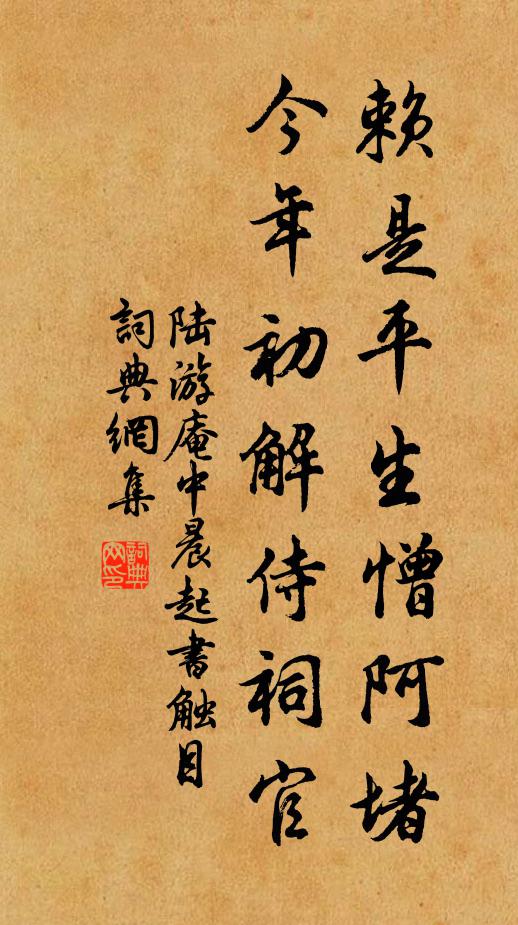 賴是平生憎阿堵
今年初解侍祠官
陸游庵中晨起書触目
詞典網集
詞典网印